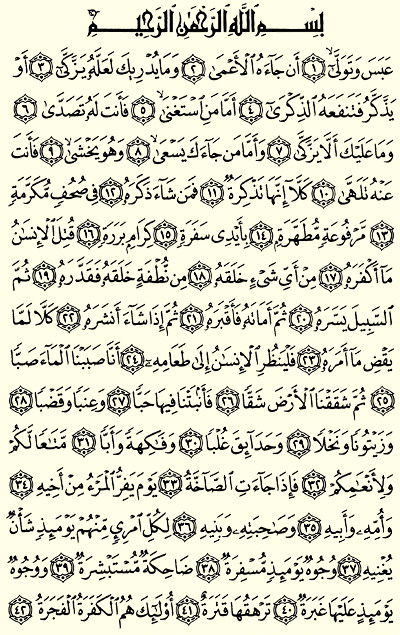 بِسْمِ اللَّهِ الرَّحْمَٰنِ الرَّحِيمِ
عَبَسَ وَتَوَلَّىٰٓ ١ أَن جَآءَهُ الْأَعْمَىٰ ٢ وَمَا يُدْرِيكَ لَعَلَّهُۥ يَزَّكَّىٰٓ ٣ أَوْ
يَذَّكَّرُ فَتَنفَعَهُ الذِّكْرَىٰٓ ٤ أَمَّا مَنِ اسْتَغْنَىٰ ٥ فَأَنتَ لَهُۥ تَصَدَّىٰ ٦
وَمَا عَلَيْكَ أَلَّا يَزَّكَّىٰ ٧ وَأَمَّا مَن جَآءَكَ يَسْعَىٰ ٨ وَهُوَ يَخْشَىٰ ٩ فَأَنتَ
عَنْهُ تَلَهَّىٰ ١٠ كَلَّآ إِنَّهَا تَذْكِرَةٌ ١١ فَمَن شَآءَ ذَكَرَهُۥ ١٢ فِى صُحُفٍ مُّكَرَّمَةٍ
١٣ مَّرْفُوعَةٍ مُّطَهَّرَةٍۭ ١٤ بِأَيْدِى سَفَرَةٍ ١٥ كِرَامٍۭ بَرَرَةٍ ١٦ قُتِلَ الْإِنسَٰنُ
مَآ أَكْفَرَهُۥ ١٧ مِنْ أَىِّ شَىْءٍ خَلَقَهُۥ ١٨ مِن نُّطْفَةٍ خَلَقَهُۥ فَقَدَّرَهُۥ ١٩ ثُمَّ
السَّبِيلَ يَسَّرَهُۥ ٢٠ ثُمَّ أَمَاتَهُۥ فَأَقْبَرَهُۥ ٢١ ثُمَّ إِذَا شَآءَ أَنشَرَهُۥ ٢٢ كَلَّا لَمَّا
يَقْضِ مَآ أَمَرَهُۥ ٢٣ فَلْيَنظُرِ الْإِنسَٰنُ إِلَىٰ طَعَامِهِۦٓ ٢٤ أَنَّا صَبَبْنَا الْمَآءَ صَبًّا
٢٥ ثُمَّ شَقَقْنَا الْأَرْضَ شَقًّا ٢٦ فَأَنۢبَتْنَا فِيهَا حَبًّا ٢٧ وَعِنَبًا وَقَضْبًا ٢٨
وَزَيْتُونًا وَنَخْلًا ٢٩ وَحَدَآئِقَ غُلْبًا ٣٠ وَفَٰكِهَةً وَأَبًّا ٣١ مَّتَٰعًا لَّكُمْ
وَلِأَنْعَٰمِكُمْ ٣٢ فَإِذَا جَآءَتِ الصَّآخَّةُ ٣٣ يَوْمَ يَفِرُّ الْمَرْءُ مِنْ أَخِيهِ ٣٤
وَأُمِّهِۦ وَأَبِيهِ ٣٥ وَصَٰحِبَتِهِۦ وَبَنِيهِ ٣٦ لِكُلِّ امْرِئٍ مِّنْهُمْ يَوْمَئِذٍ شَأْنٌ
يُغْنِيهِ ٣٧ وُجُوهٌ يَوْمَئِذٍ مُّسْفِرَةٌ ٣٨ ضَاحِكَةٌ مُّسْتَبْشِرَةٌ ٣٩ وَوُجُوهٌ
يَوْمَئِذٍ عَلَيْهَا غَبَرَةٌ ٤٠ تَرْهَقُهَا قَتَرَةٌ ٤١ أُو۟لَٰٓئِكَ هُمُ الْكَفَرَةُ الْفَجَرَةُ ٤٢